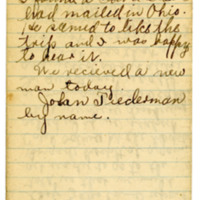 had mailed in Ohio.
He semed to like the
trip and I was happy
to hear it.
We recieved a new
man today.
Johan Tiedesman
by name.